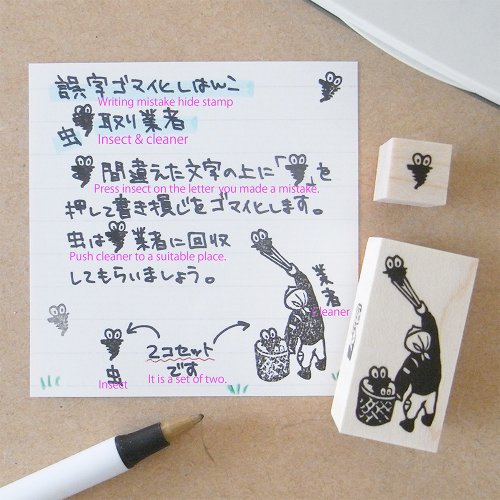 誤字ゴマイヒしはんこ
Writing mistake hide stamp
虫 取り業者
Insect & cleaner
間違えた文字の上に「 」を
Press insect on the letter you made a mistake.
押して書き損じをゴマイヒします。
虫は 業者に回収
Push cleaner to a suitable place.
してもらいましょう。
業者
Cleaner
2コセット
です
It is a set of two.
虫
Insect